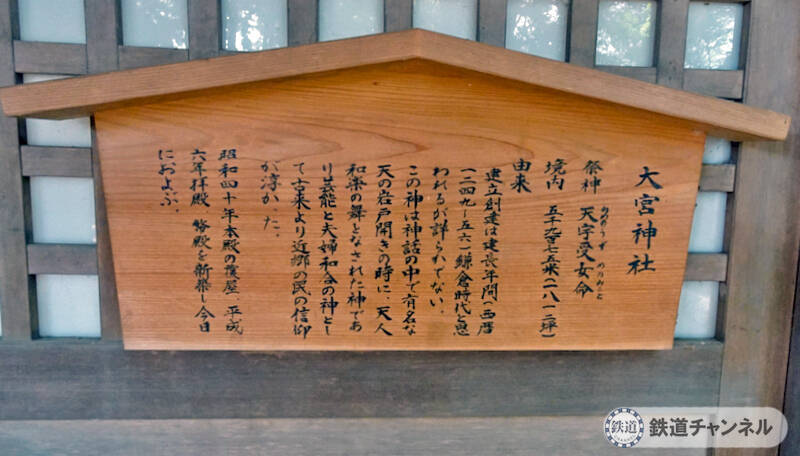 大宮神社
祭神 天宇受女命
あめのうずめ のみこと
境内
由来
建立創建は建長年間(西暦
一二四九~五六)鎌倉時代と思
われるが詳らかでない。
この神は神話の中で有名な
天の岩戸開きの時に、天人
和楽の舞をなされた神であ
り芸能と夫婦和合の神とし
て古来より近郷の民の信仰
が淳かった。
昭和四十年本殿の覆屋、平成
六年拝殿 弊殿を新築し今日
におよぶ。
鉄道
鉄道チャンネル